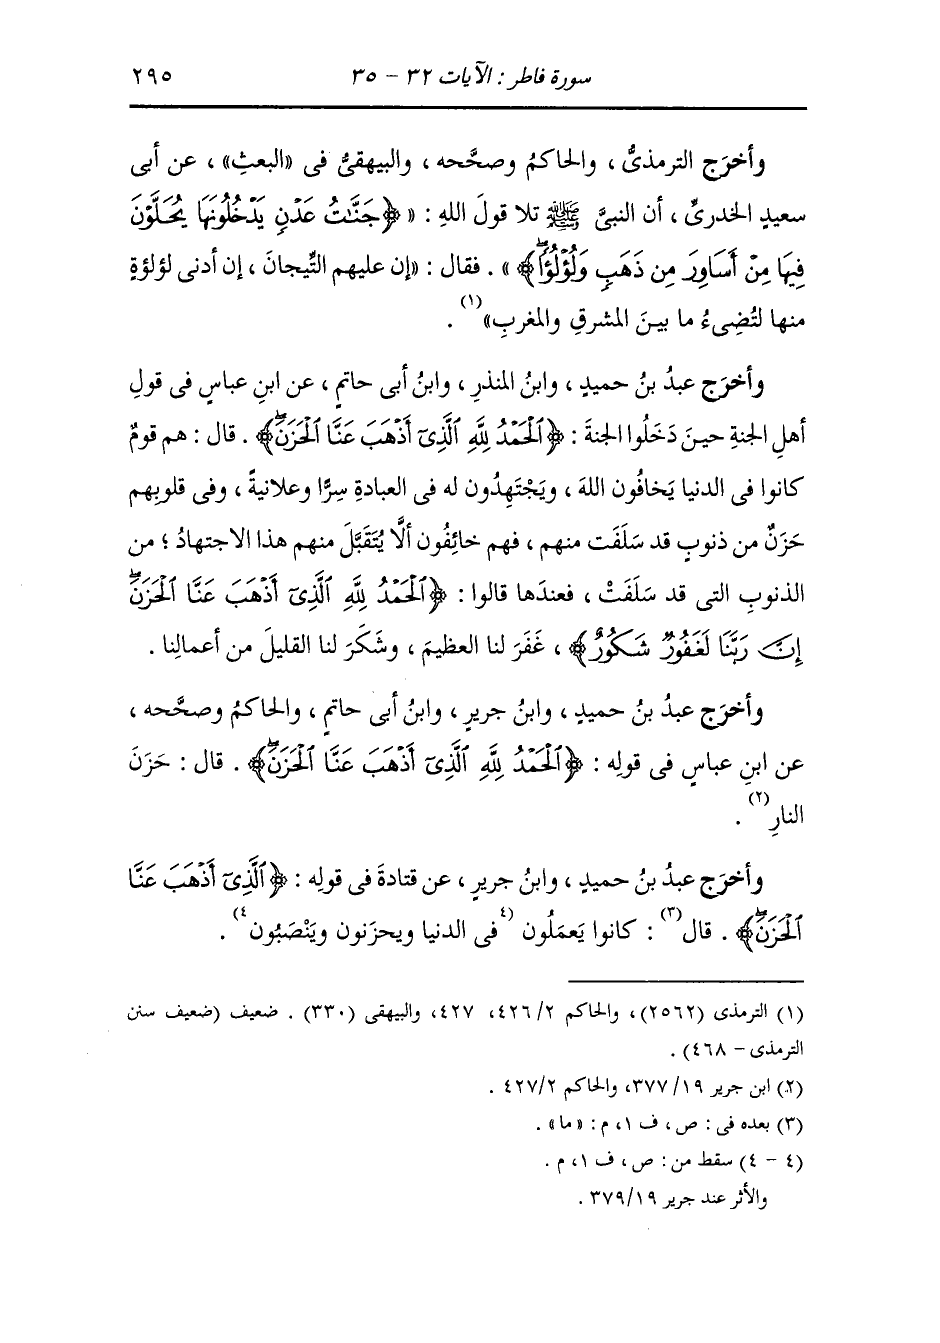 سورة فاطر : الآيات ٣٢ - ٣٥ ٢٩٥
وأخرَج الترمذىُّ ، والحاكمُ وصحَّحه ، والبيهقىُّ فى «البعثِ» ، عن أبى
سعيدٍ الخدرىِّ ، أن النبىَّ ﷺ تلا قولَ اللهِ : « ﴿جَنَّٰتُ عَدْنٍ يَدْخُلُونَهَا يُحَلَّوْنَ
فِيهَا مِنْ أَسَاوِرَ مِن ذَهَبٍ وَلُؤْلُؤًاۖ﴾ » . فقال : «إن عليهم التِّيجانَ ، إن أدنى لؤلؤةٍ
منها لتُضِىءُ ما بينَ المشرقِ والمغربِ»(١) .
وأخرَج عبدُ بنُ حميدٍ ، وابنُ المنذرِ ، وابنُ أبى حاتمٍ ، عن ابنِ عباسٍ فى قولِ
أهلِ الجنةِ حينَ دَخَلُوا الجنةَ : ﴿ٱلْحَمْدُ لِلَّهِ ٱلَّذِىٓ أَذْهَبَ عَنَّا ٱلْحَزَنَۖ﴾ . قال : هم قومٌ
كانوا فى الدنيا يَخافُون اللهَ ، ويَجْتَهِدُون له فى العبادةِ سِرًّا وعلانيةً ، وفى قلوبِهم
حَزَنٌ من ذنوبٍ قد سَلَفَت منهم ، فهم خائِفُون ألَّا يُتَقَبَّلَ منهم هذا الاجتهادُ ؛ من
الذنوبِ التى قد سَلَفَتْ ، فعندَها قالوا : ﴿ٱلْحَمْدُ لِلَّهِ ٱلَّذِىٓ أَذْهَبَ عَنَّا ٱلْحَزَنَۖ
إِنَّ رَبَّنَا لَغَفُورٌ شَكُورٌ﴾ ، غَفَرَ لنا العظيمَ ، وشَكَرَ لنا القليلَ من أعمالِنا .
وأخرَج عبدُ بنُ حميدٍ ، وابنُ جريرٍ ، وابنُ أبى حاتمٍ ، والحاكمُ وصحَّحه ،
عن ابنِ عباسٍ فى قولِه : ﴿ٱلْحَمْدُ لِلَّهِ ٱلَّذِىٓ أَذْهَبَ عَنَّا ٱلْحَزَنَۖ﴾ . قال : حَزَنَ
النارِ(٢) .
وأخرَج عبدُ بنُ حميدٍ ، وابنُ جريرٍ ، عن قتادةَ فى قولِه : ﴿ٱلَّذِىٓ أَذْهَبَ عَنَّا
ٱلْحَزَنَۖ﴾ . قال(٣) : كانوا يَعمَلُون (٤فى الدنيا ويحزَنون ويَنْصَبُون٤) .
(١) الترمذى (٢٥٦٢) ، والحاكم ٤٢٦/٢، ٤٢٧، والبيهقى (٣٣٠) . ضعيف (ضعيف سنن
الترمذى - ٤٦٨) .
(٢) ابن جرير ٣٧٧/١٩، والحاكم ٤٢٧/٢ .
(٣) بعده فى : ص ، ف ١، م : «ما» .
(٤ - ٤) سقط من : ص ، ف ١، م .
والأثر عند جرير ٣٧٩/١٩ .